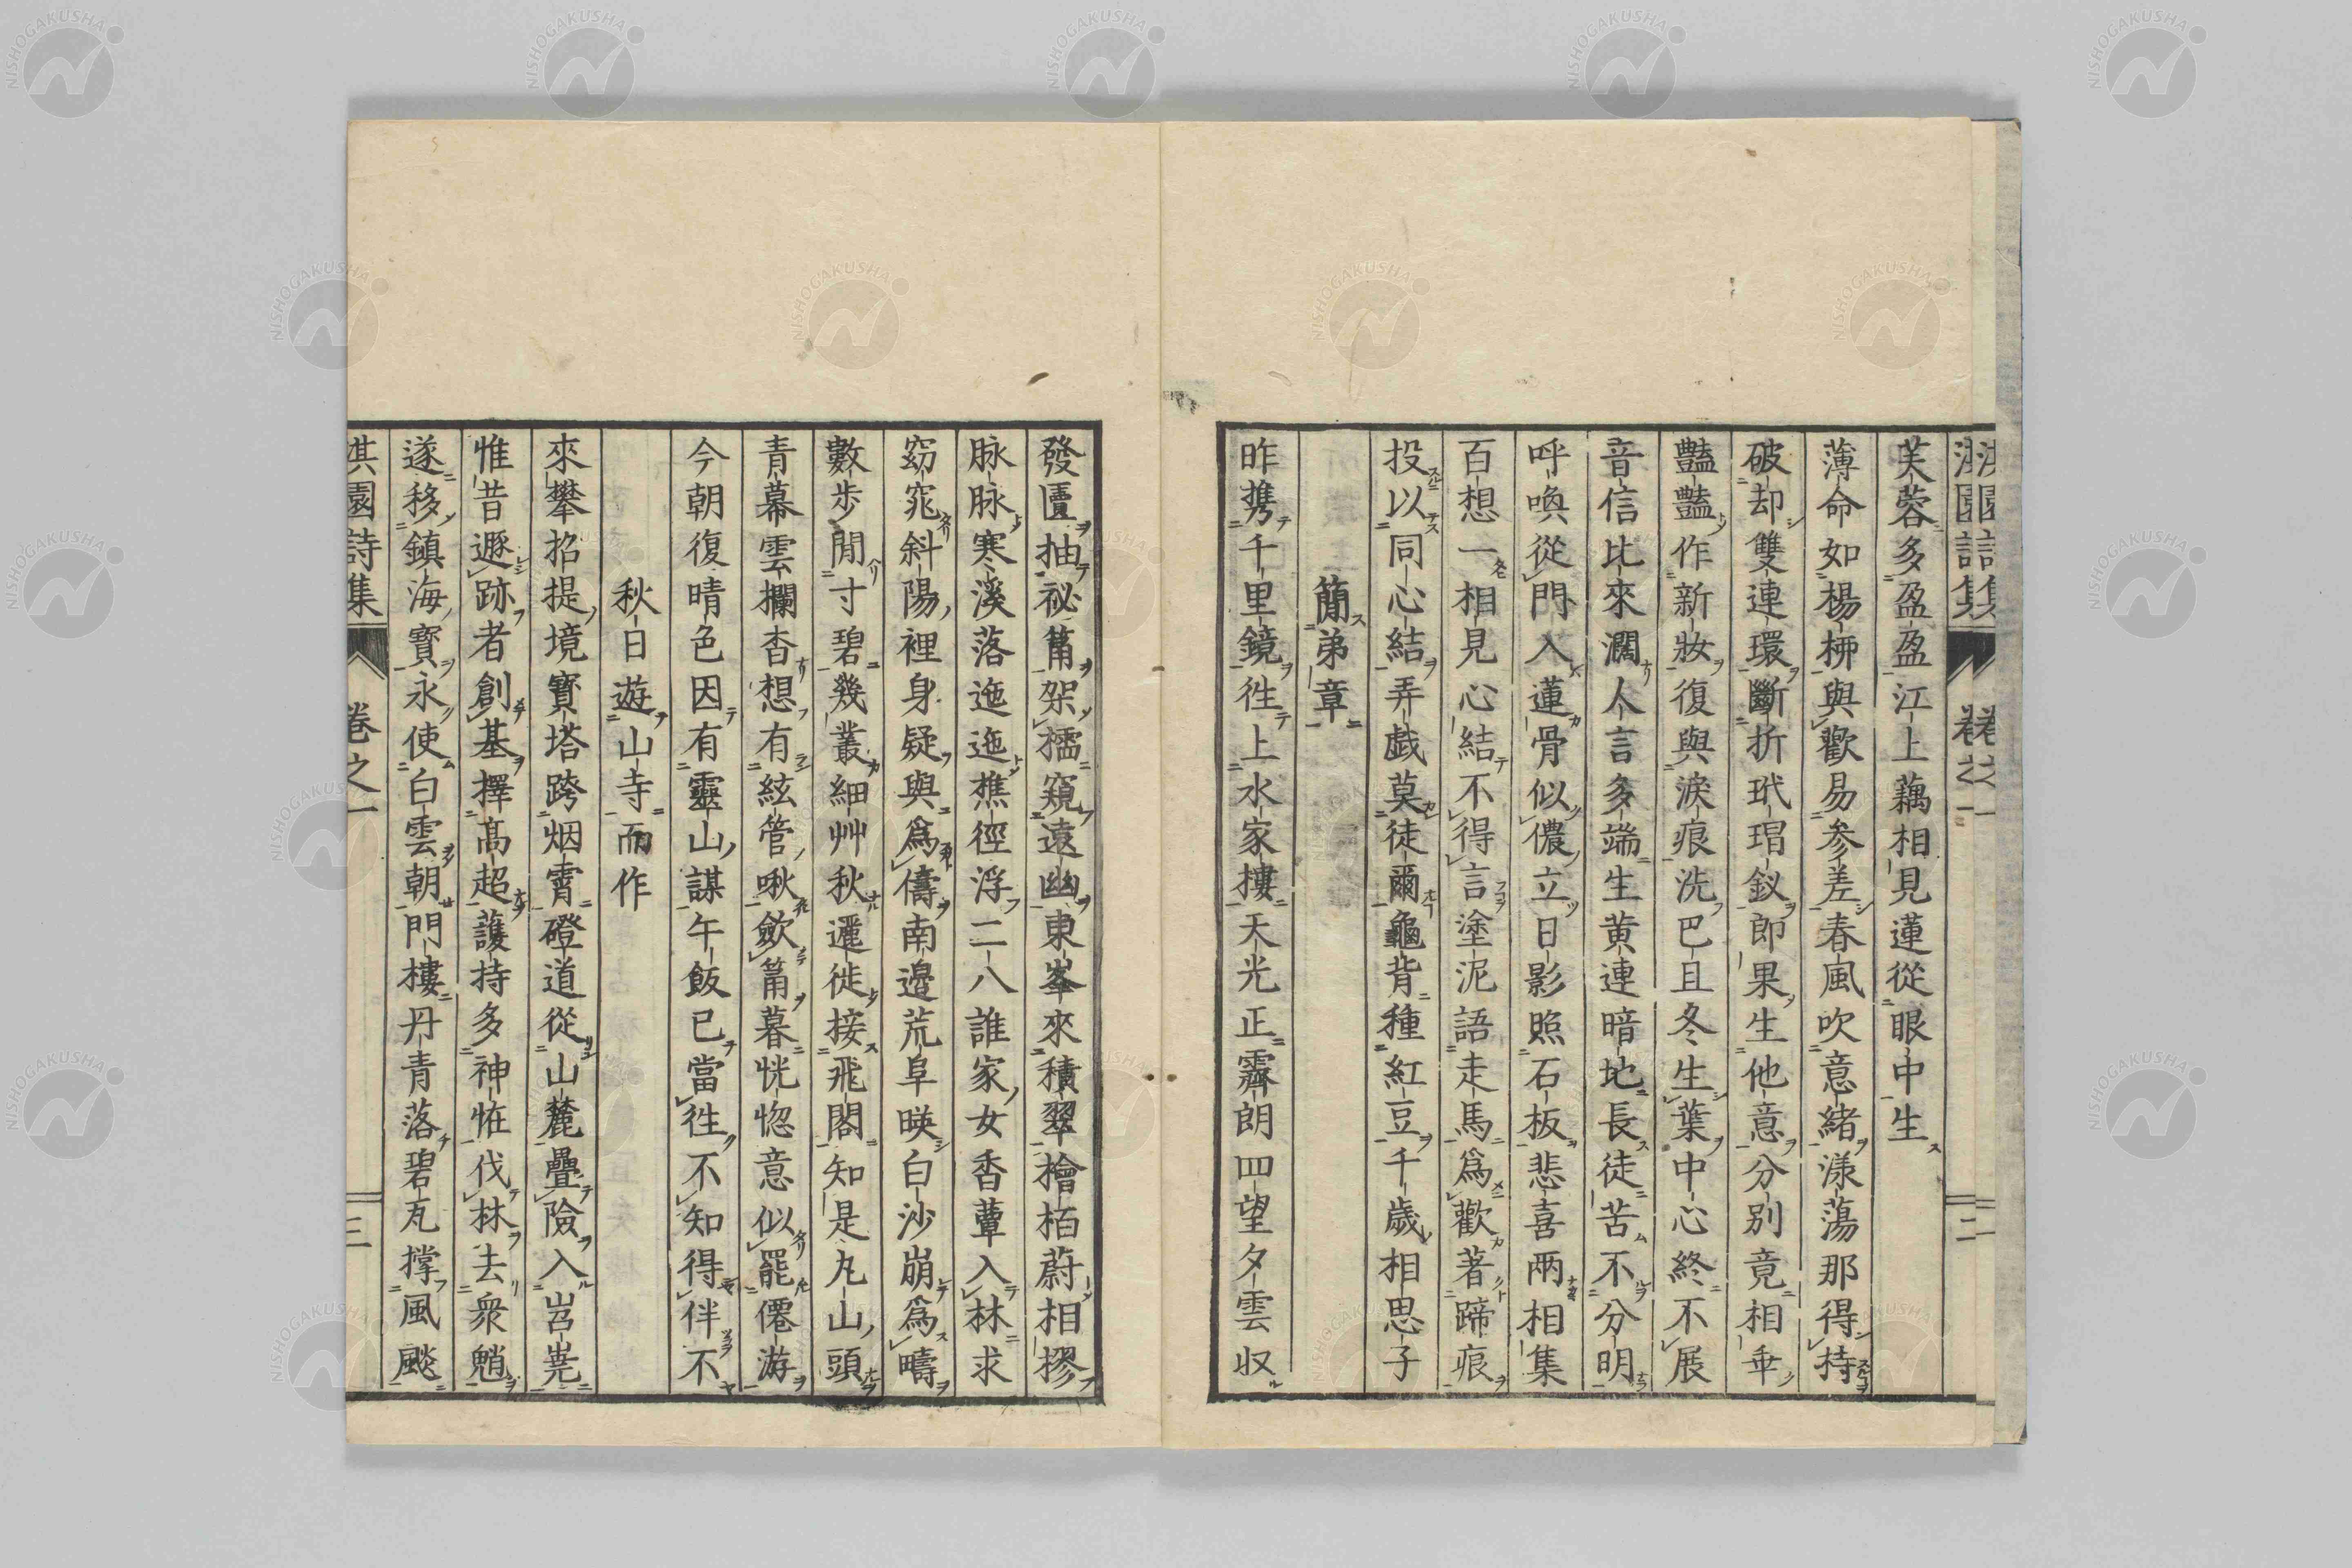 淇園詩集 卷之一 二
芙蓉多盈盈江上藕相見蓮從眼中生
薄命如楊柳與歡易参差春風吹意緒漾蕩那得持
破却雙連環斷折玳瑁釵郎果生他意分別竟相乖
豔豔作新妝復與淚痕洗巴且冬生葉中心終不展
音信比來濶人言多端生黄連暗地長徒苦不分明
呼喚從門入蓮骨似儂立日影照石板悲喜兩相集
百想一相見心結不得言塗泥語走馬爲歡著蹄痕
投以同心結弄戯莫徒爾龜背種紅豆千歳相思子
簡弟章
昨携千里鏡徃上水家樓天光正霽朗四望夕雲収
發匵抽祕篇架擩窺遠幽東峯來積翠檜栢蔚相摎
脉脉寒溪落迤迤樵徑浮二八誰家女香蕈入林求
窈窕斜陽裡身疑與爲儔南邉荒阜暎白沙崩爲疇
數歩閒寸碧幾叢細艸秋邐徙接飛閣知是丸山頭
青幕雲欄杳想有絃管啾歛篇暮恍惚意似罷僊游
今朝復晴色因有靈山謀午飯已當徃不知得伴不
秋日遊山寺而作
來攀招提境寳塔跨烟霄磴道從山麓疊險入岧嶤
惟昔遯跡者創基擇高超護持多神恠伐林去衆魈
遂移鎮海寳永使白雲朝門樓丹青落碧瓦撑風飈
淇園詩集 卷之一 三